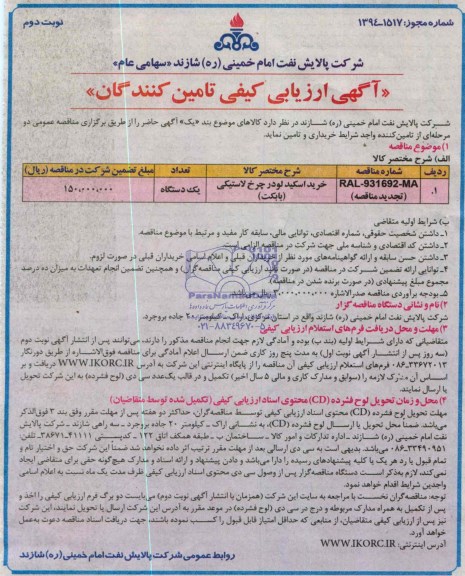 شماره مجوز: ۱۳۹۴-۱۵۱۷
نوبت دوم
شرکت پالایش نفت امام خمینی (ره) شازند «سهامی عام»
«آگهی ارزیابی کیفی تامین کنندگان»
شرکت پالایش نفت امام خمینی (ره) شازند در نظر دارد کالاهای موضوع بند «یک» آگهی حاضر را از طریق برگزاری مناقصه عمومی دو
مرحله‌ای از تامین‌کننده واجد شرایط خریداری و تامین نماید.
۱) موضوع مناقصه
الف) شرح مختصر کالا
ردیف شماره مناقصه شرح مختصر کالا تعداد مبلغ تضمین شرکت در مناقصه (ریال)
۱. RAL-931692-MA (تجدید مناقصه) خرید اسکید لودر چرخ لاستیکی (بابکت) یک دستگاه ۱۵۰,۰۰۰,۰۰۰
ب) شرایط اولیه متقاضی
۱ـ داشتن شخصیت حقوقی، شماره اقتصادی، توانایی مالی، سابقه کار مفید و مرتبط با موضوع مناقصه.
۲ـ داشتن کد اقتصادی و شناسه ملی جهت شرکت در مناقصه الزامی است.
۳ـ داشتن حسن سابقه و ارائه گواهینامه‌های مورد نظر از خریداران قبلی و اعلام اسامی خریداران قبلی در صورت لزوم.
۴ـ توانایی ارائه تضمین شرکت در مناقصه (در صورت تایید ارزیابی کیفی مناقصه‌گران) و همچنین تضمین انجام تعهدات به میزان ده درصد
مبلغ پیشنهادی (در صورت برنده شدن در مناقصه)
۵ـ بودجه برآوردی مناقصه صدرالاشاره ریال می‌باشد.
۲) نام و نشانی دستگاه مناقصه‌گزار
شرکت پالایش نفت امام خمینی (ره) شازند واقع در استان مرکزی، اراک ـ کیلومتر ۲۰ جاده بروجرد.
۳) مهلت و محل دریافت فرم‌های استعلام ارزیابی کیفی
متقاضیانی که دارای شرایط اولیه (بند ب) بوده و آمادگی لازم جهت انجام مناقصه مذکور را دارند، می‌توانند پس از انتشار آگهی نوبت دوم
(سه روز پس از انتشار آگهی نوبت اول) به مدت پنج روز کاری ضمن ارسال اعلام آمادگی برای مناقصه فوق‌الاشاره از طریق دورنگار
۰۸۶-۳۳۶۷۲۰۱۳، فرم‌های استعلام ارزیابی کیفی آن مناقصه را از پایگاه اینترنتی این شرکت به آدرس WWW.IKORC.IR دریافت و بر
اساس آن مدارک لازمه را (سوابق و مدارک کاری و مالی ۵ سال اخیر) تکمیل و در قالب یک‌عدد سی دی (لوح فشرده) به این شرکت تحویل
یا ارسال نمایند.
۴) محل و زمان تحویل لوح فشرده (CD) محتوی اسناد ارزیابی کیفی (تکمیل شده توسط متقاضیان)
مهلت تحویل لوح فشرده (CD) محتوی اسناد ارزیابی کیفی توسط مناقصه‌گران، حداکثر دو هفته پس از مهلت مقرر وفق بند ۳ فوق‌الذکر
می‌باشد. ضمنا محل تحویل یا ارسال لوح فشرده (CD)، به نشانی اراک ـ کیلومتر ۲۰ جاده بروجرد ـ سه راهی شازند ـ شرکت پالایش
نفت امام خمینی (ره) شازند ـ اداره تدارکات و امور کالا ـ ساختمان ب ـ طبقه همکف اتاق ۱۲۲ ـ کدپستی ۴۱۱۱۱-۳۸۶۷۱، تلفن:
۰۸۶-۳۳۴۹۰۹۵۱ می‌باشد. بدیهی است به سی دی ارسالی بعد از مهلت مقرر ترتیب اثر داده نخواهد شد ضمنا این شرکت حق و اختیار تام و
تمام قبول یا رد هر یک یا کلیه پیشنهادهای رسیده را دارا می‌باشد و دادن پیشنهاد و ارائه اسناد و مدارک هیچ‌گونه حقی برای متقاضی ایجاد
نمی‌کند. لازم به‌ذکر است دستگاه مناقصه‌گزار پس از وصول سی دی محتوی اسناد ارزیابی کیفی ظرف مدت یک ماه نسبت به اعلام اسامی
واجدین شرایط اقدام خواهد نمود.
توجه: مناقصه‌گران نخست با مراجعه به سایت این شرکت (همزمان با انتشار آگهی نوبت دوم) می‌بایست دو برگ فرم ارزیابی کیفی را اخذ و
پس از تکمیل به همراه مدارک مربوطه و درج در سی دی (لوح فشرده) در موعد مقرر به آدرس این شرکت ارسال یا تحویل نمایند، این شرکت
نیز پس از ارزیابی کیفی متقاضیان، از منابعی که حداقل امتیاز قابل قبول را کسب نموده باشند، جهت دریافت اسناد مناقصه دعوت به‌عمل
خواهد آورد.
آدرس اینترنتی: WWW.IKORC.IR
روابط عمومی شرکت پالایش نفت امام خمینی (ره) شازند
ParsNamadData
۰۲۱-۸۸۳۴۹۶۷۰-۵